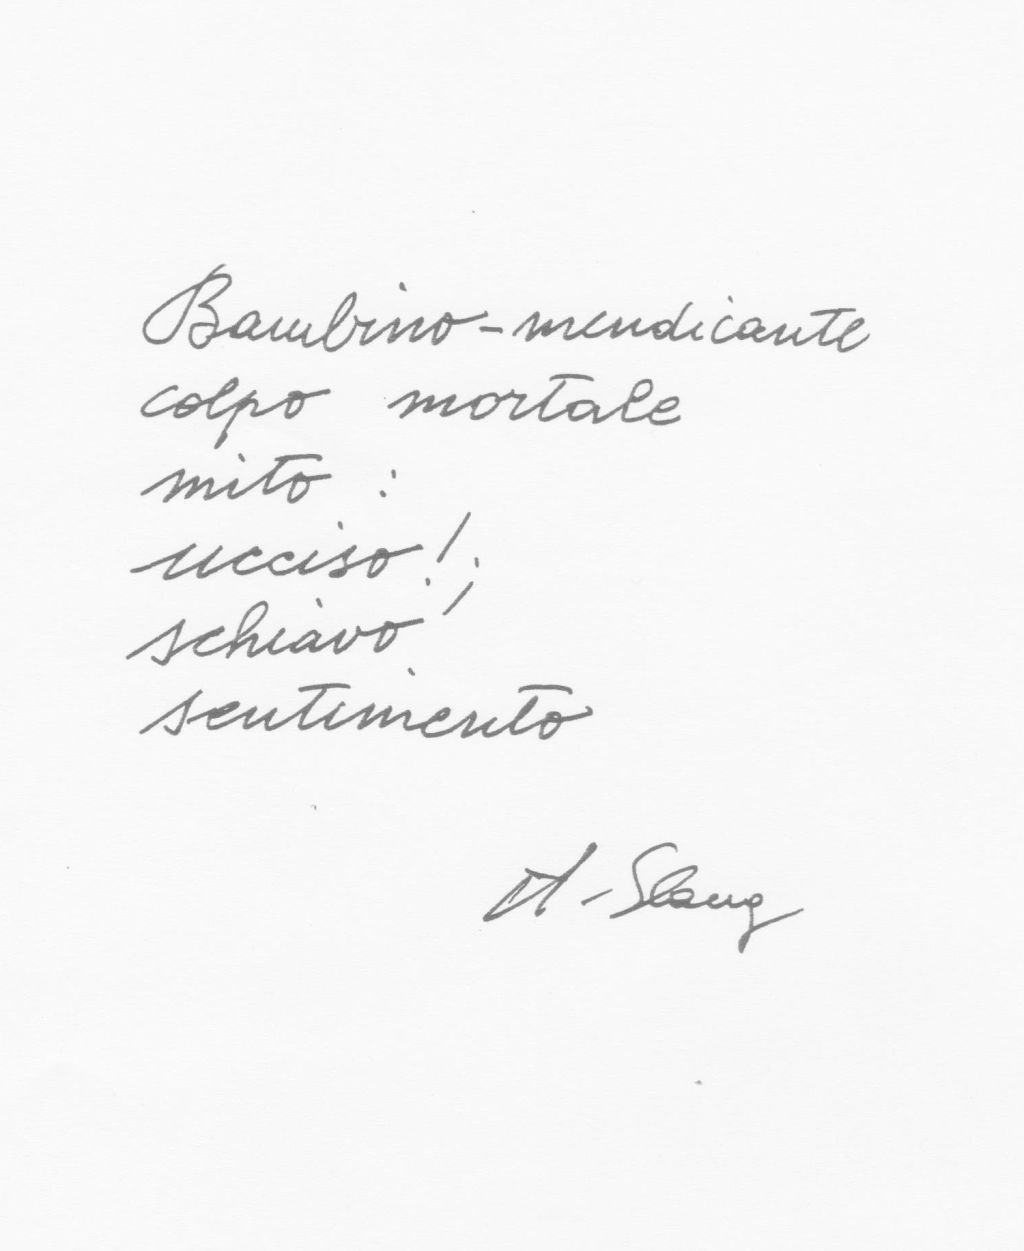 Bambino-mendicante
colpo mortale
mito :
ucciso!;
schiavo
sentimento
A-Slang